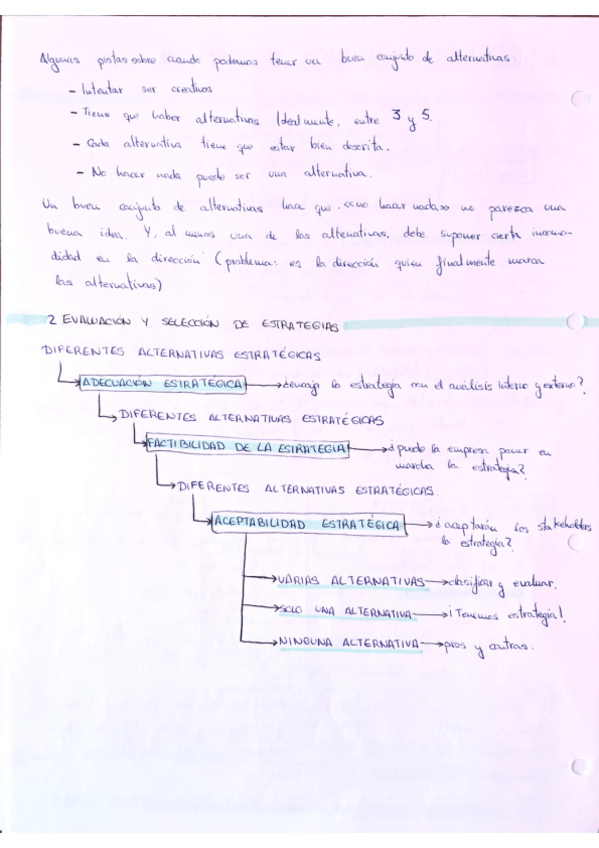 Algunas pistas sobre cuando podemos tener un buen conjunto de alternativas
- Intentar ser creativos
- Tiene que haber alternativas Idealmente, entre 3 y 5.
- Cada alternativa tiene que estar bien descrita.
- No hacer nada puede ser una alternativa.
Un buen conjunto de alternativas hará que «no hacer nada» no parezca una
buena idea. Y, al menos una de las alternativas, debe suponer cierta incomo-
didad en la dirección (problema: es la dirección quien finalmente marca
las alternativas)
2 EVALUACIÓN Y SELECCIÓN DE ESTRATEGIAS
DIFERENTES ALTERNATIVAS ESTRATÉGICAS
ADECUACIÓN ESTRATÉGICA → la estrategia con el análisis interno y externo?
DIFERENTES ALTERNATIVAS ESTRATÉGICAS
FACTIBILIDAD DE LA ESTRATEGIA → ¿puede la empresa poner en
marcha la estrategia?
DIFERENTES ALTERNATIVAS ESTRATÉGICAS.
ACEPTABILIDAD ESTRATÉGICA → ¿aceptarán los stakeholders
la estrategia?
VARIAS ALTERNATIVAS → clasificar y evaluar.
SOLO UNA ALTERNATIVA → ¡Tenemos estrategia!
NINGUNA ALTERNATIVA → pros y contras.